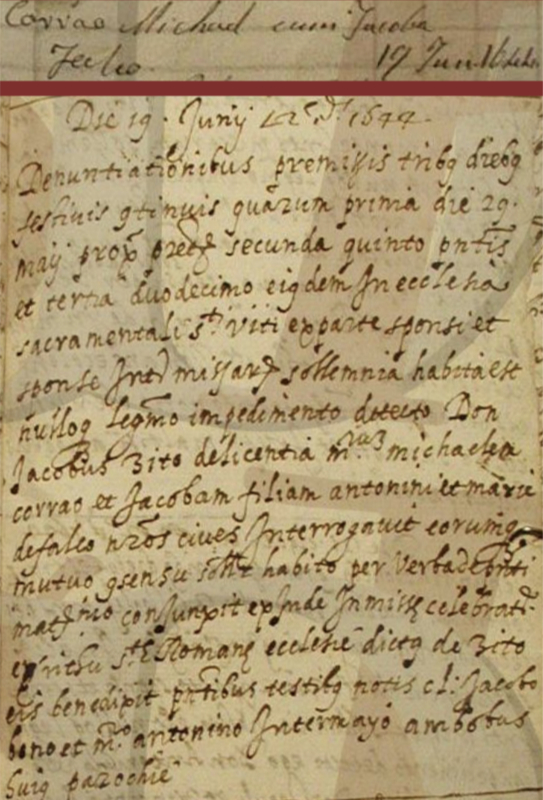 Corrao Michael cum Jacoba
Falco 19 Jun 16
Die 19. Junij 12 Ind. 1644
Denuntiationibus premissis tribq diebq
festivis gtinuis quarum prima die 29.
maij prox pret secunda quinto pntis
et tertia duodecimo eigdem In ecclesia
sacramentali sti viti ex parte sponsi et
sponse Inter missarum sollemnia habita est
nulloq legmo impedimento detecto Don
Jacobus Zito de licentia michaelem
corrao et Jacobam filiam antonini et marie
de falco nros cives Interrogavit eorumq
mutuo gsensu habito per verba de pnti
matrnio conJunxit ex Inde In miss celebratr
ex rithu ste Romane ecclesie dictq de Zito
eis benedixit pntibus testibq notis cl: Jacobo
bono et mro antonino Intermayo ambobus
huiq parochie